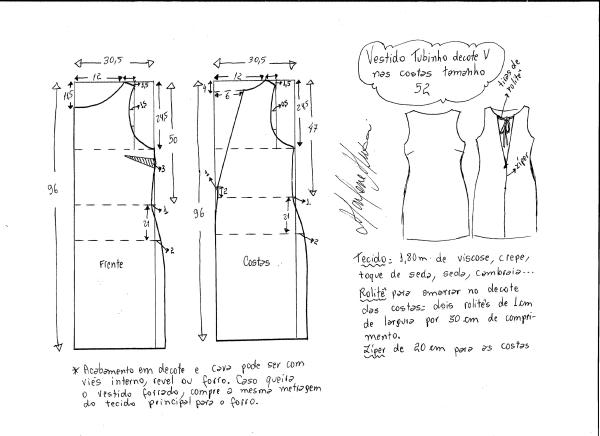 30,5
12
1,5
11,5
1,5
24,5
50
3
96
1
21
2
Frente
30,5
12
4
6
1,5
24,5
47
2
96
1
21
2
Costas
Vestido Tubinho decote V
nas costas tamanho
52
tiras de
rolitê
zíper
Tecido: 1,80m de viscose, crepe,
toque de seda, seda, cambraia...
Rolitê para amarrar no decote
das costas: dois rolitês de 1cm
de largura por 30 cm de compri-
mento.
Zíper de 20 cm para as costas
* Acabamento em decote e cava pode ser com
viés interno, revel ou forro. Caso queira
o vestido forrado, compre a mesma metragem
do tecido principal para o forro.